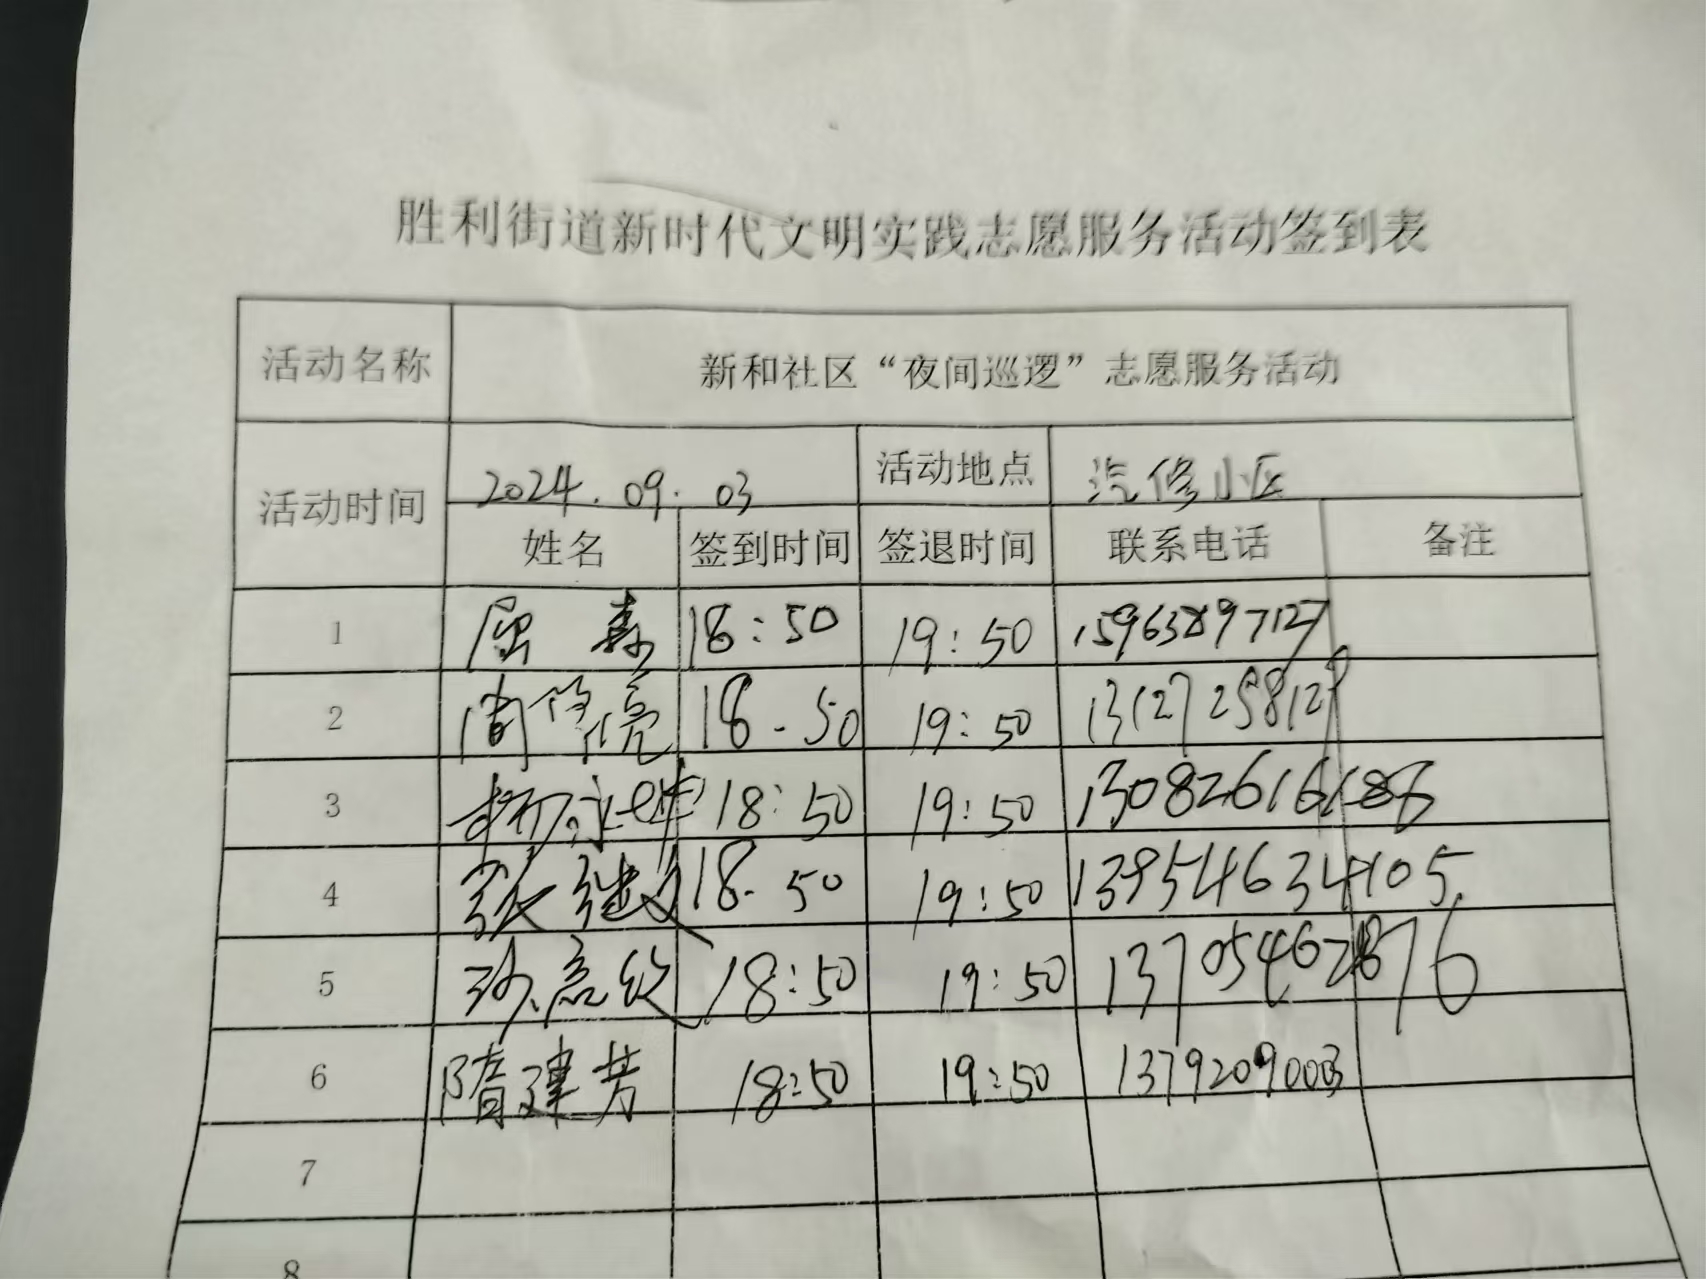 胜利街道新时代文明实践志愿服务活动签到表
活动名称 新和社区“夜间巡逻”志愿服务活动
活动时间 2024.09.03 活动地点 汽修小区
姓名 签到时间 签退时间 联系电话 备注
1 屈森 18:50 19:50 15963897127
2 周 亮 18.50 19:50
3 杨 18:50 19:50 13082616186
4 张继文 18.50 19:50 13954634105
5 孙 18:50 19:50 13705462876
6 隋建芳 18:50 19:50 1379209003
7
8